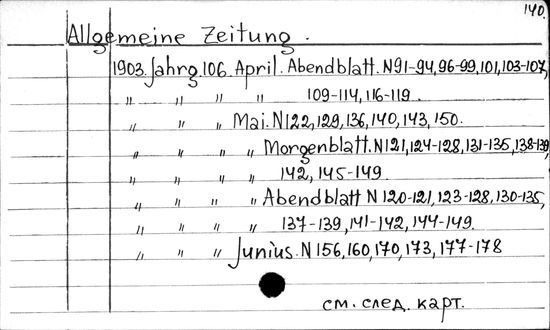 140.
Allgemeine Zeitung.
1903. Jahrg. 106. April. Abendblatt. N 91-94, 96-99, 101, 103-107,
" " " " 109-114, 116-119.
" " " Mai. N 122, 129, 136, 140, 143, 150.
" " " " Morgenblatt. N 121, 124-128, 131-135, 138-139,
" " " " 142, 145-149.
" " " " Abendblatt N 120-121, 123-128, 130-135,
" " " " 137-139, 141-142, 144-149.
" " " Junius. N 156, 160, 170, 173, 177-178
см. след. карт.